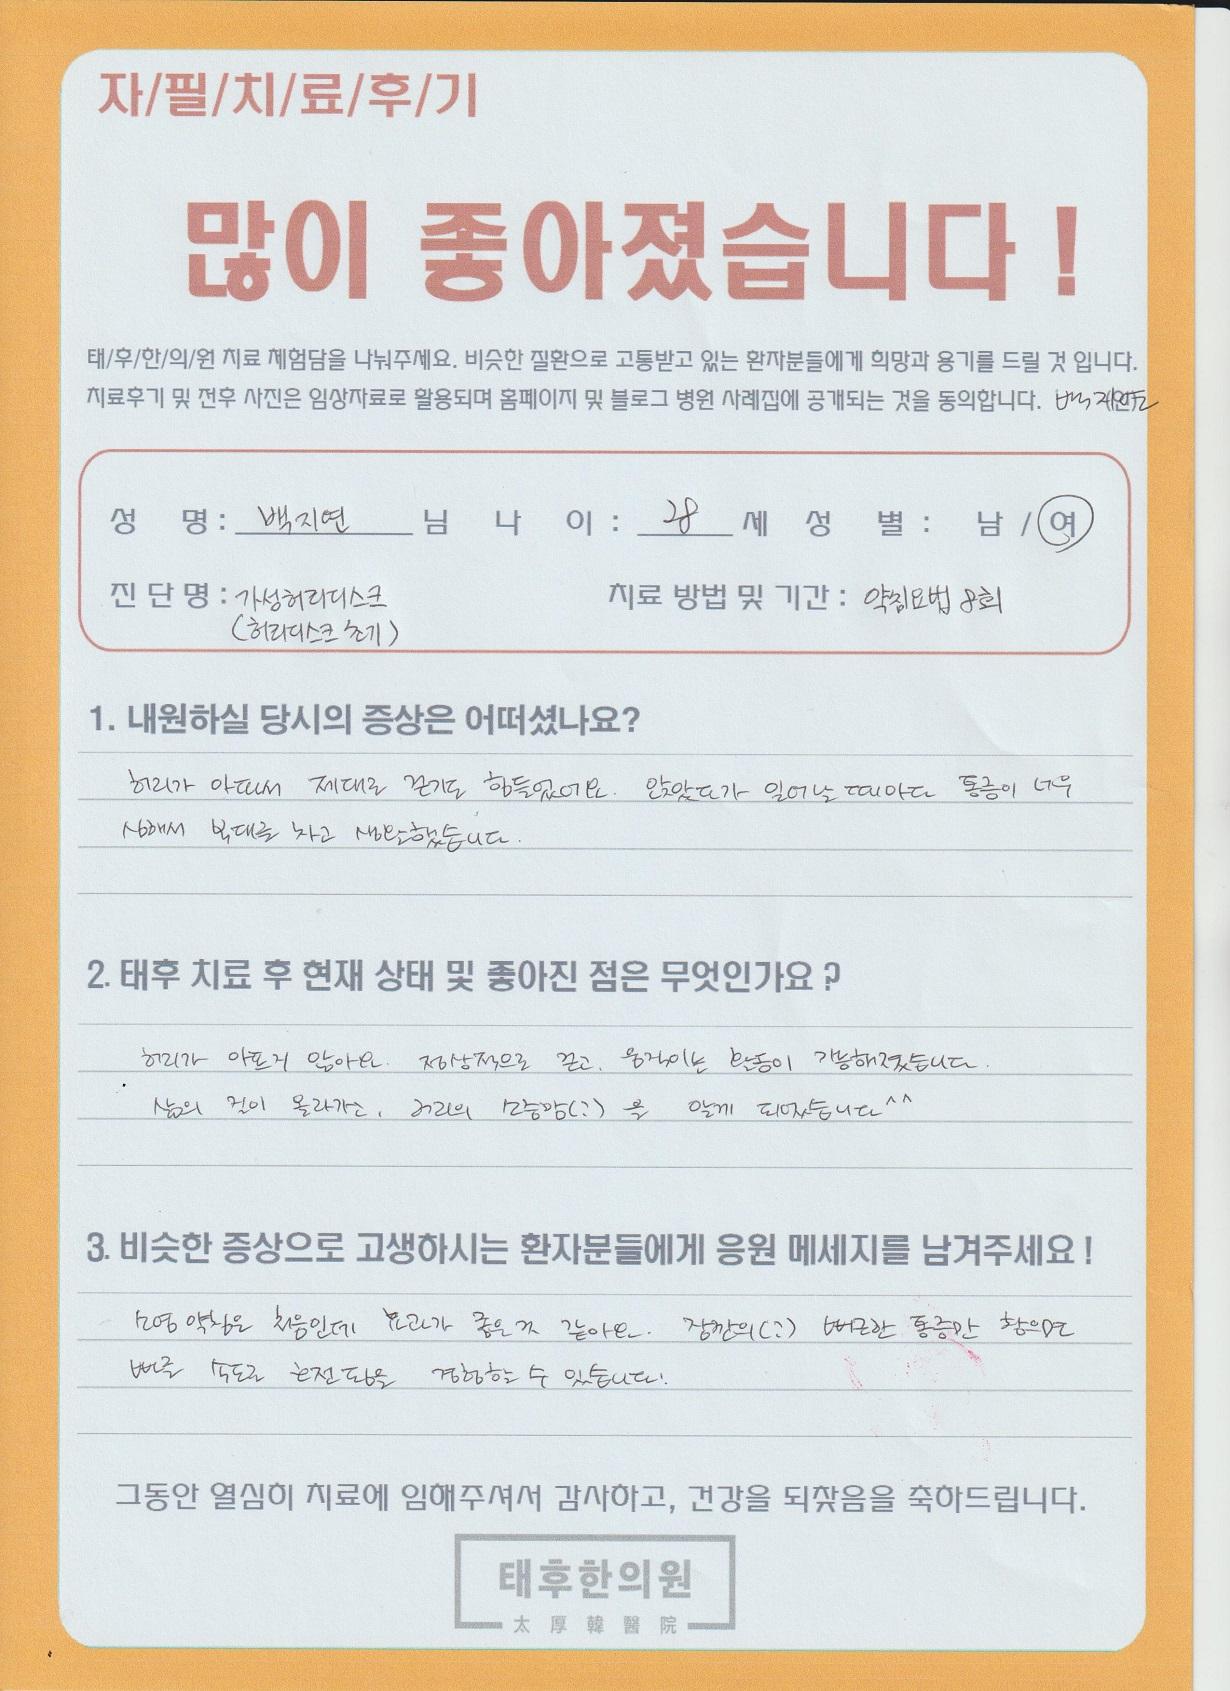 자/필/치/료/후/기
많이 좋아졌습니다 !
태/후/한/의/원 치료 체험담을 나눠주세요. 비슷한 질환으로 고통받고 있는 환자분들에게 희망과 용기를 드릴 것 입니다.
치료후기 및 전후 사진은 임상자료로 활용되며 홈페이지 및 블로그 병원 사례집에 공개되는 것을 동의합니다.
성 명 : 백지연 님 나 이 : 28 세 성 별 : 남 / 여
진 단 명 : 가성허리디스크 치료 방법 및 기간 : 약침요법 8회
(허리디스크 초기)
1. 내원하실 당시의 증상은 어떠셨나요?
허리가 아파서 제대로 걷기도 힘들었어요. 앉았다가 일어날 때마다 통증이 너무
심해서 복대를 차고 생활했습니다.
2. 태후 치료 후 현재 상태 및 좋아진 점은 무엇인가요 ?
허리가 아프지 않아요. 정상적으로 걷고, 움직이는 활동이 가능해졌습니다.
삶의 질이 올라가고, 허리의 소중함(?)을 알게 되었습니다^^
3. 비슷한 증상으로 고생하시는 환자분들에게 응원 메세지를 남겨주세요 !
약침은 처음인데 효과가 좋은 것 같아요. 잠깐의(?) 뻐근한 통증만 참으면
빠른 속도로 호전됨을 경험하는 수 있습니다!
그동안 열심히 치료에 임해주셔서 감사하고, 건강을 되찾음을 축하드립니다.
태후한의원
太厚韓醫院